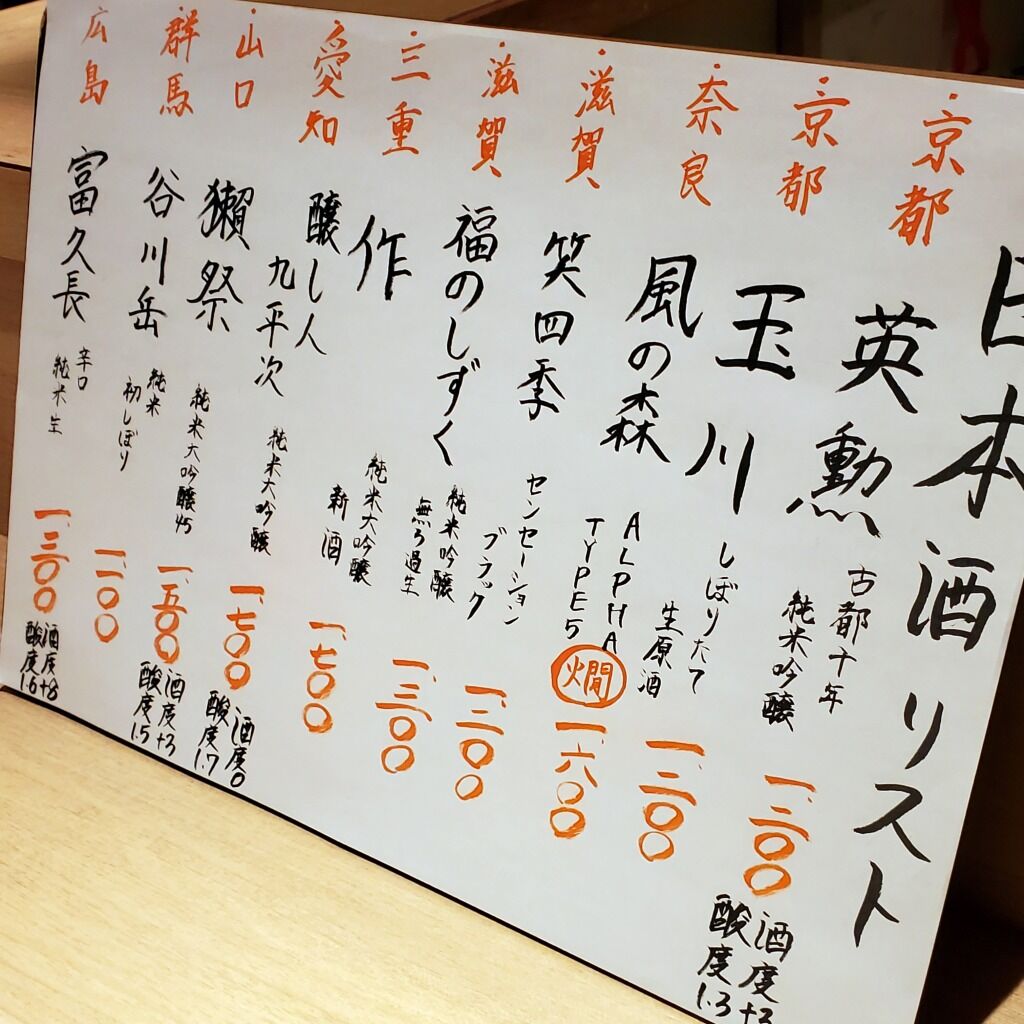 日本酒リスト
・京都
英勲
古都千年
純米吟醸
一、二〇〇
酒度+3
酸度1.3
・京都
玉川
しぼりたて
生原酒
一、二〇〇
・奈良
風の森
ALPHA
TYPE5
燗
一、六〇〇
・滋賀
笑四季
センセーション
ブラック
一、二〇〇
・滋賀
福のしずく
純米吟醸
無ろ過生
一、三〇〇
・三重
作
純米大吟醸
新酒
一、七〇〇
・愛知
醸し人
九平次
純米大吟醸
一、七〇〇
酒度0
酸度1.7
・山口
獺祭
純米大吟醸45
一、五〇〇
酒度+3
酸度1.5
・群馬
谷川岳
純米
初しぼり
一、一〇〇
・広島
富久長
辛口
純米生
一、三〇〇
酒度+8
酸度1.6